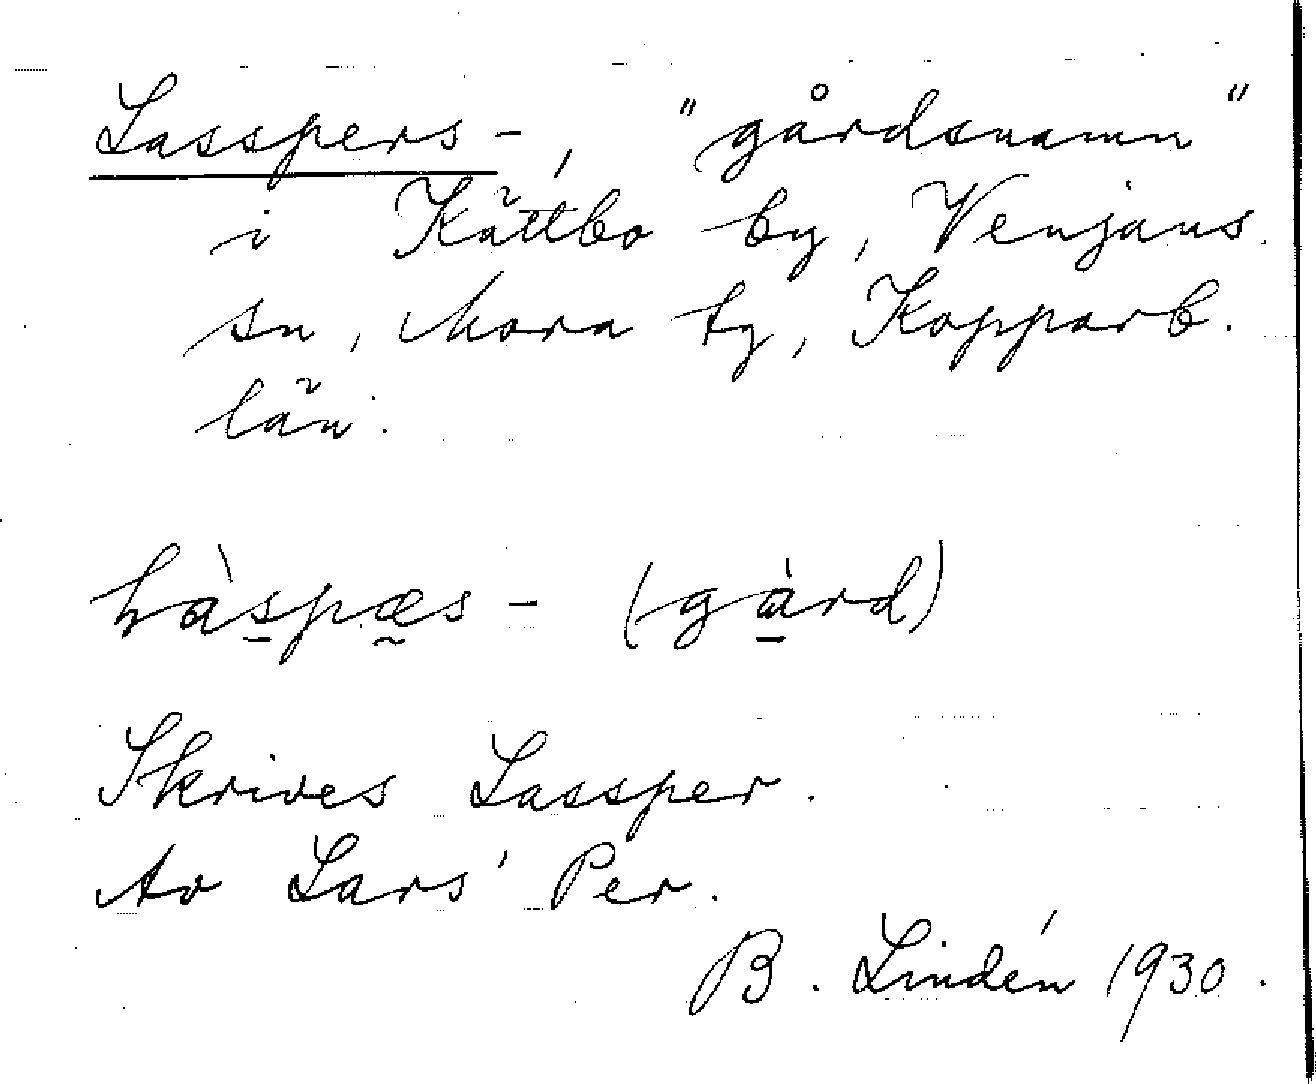 Lasspers-, "gårdsnamn"
i Kättbo by, Venjans
sn, Mora tg, Kopparb.
län.
làs̠pæ̰s - (gà̠rd)
Skrives Lassper.
Av Lars' Per.
B. Lindén 1930.